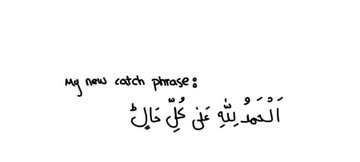 My new catch phrase:
اَلْحَمْدُ لِلّٰهِ عَلٰى كُلِّ حَالٍ